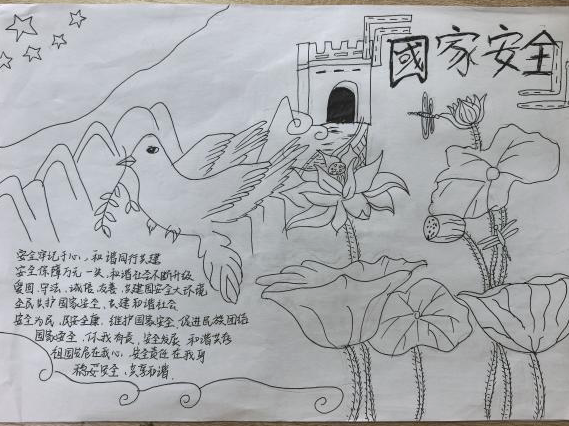 國家安全
安全牢记于心，和谐同行共建
安全保障万无一失，和谐社会不断升级
爱国、守法、诚信、友善，共建国安全大环境
全民共护国家安全，共建和谐社会
安全为民，民安全康，维护国家安全，促进民族团结
国家安全，你我有责，安全发展，和谐共存
祖国发展在我心，安全责任在我身
稳妥安全，共享和谐。